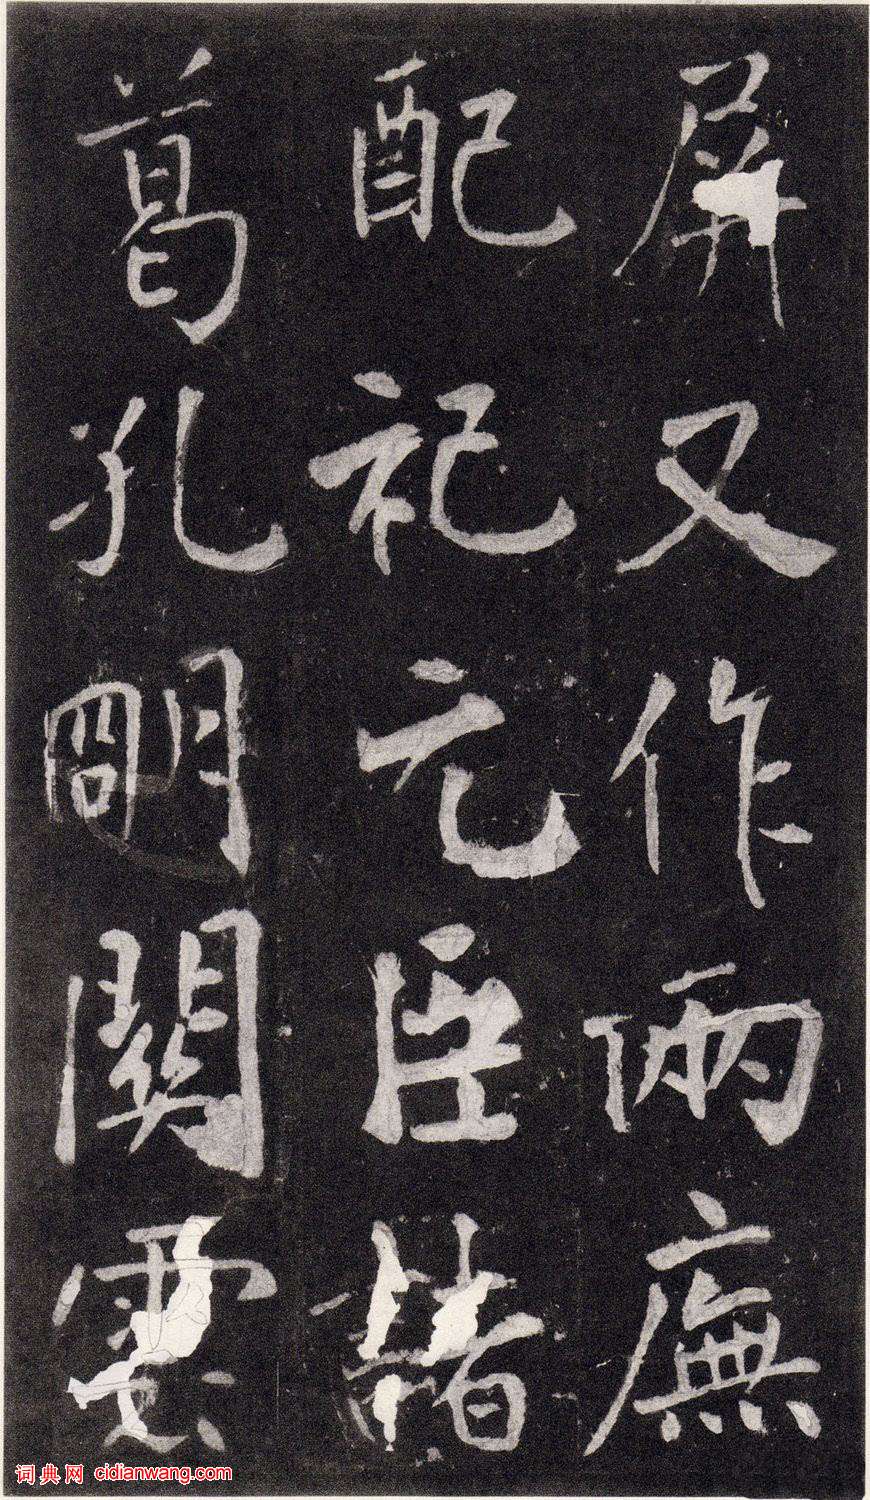 屏又作兩廡
配祀元臣諸
葛孔明關雲
词典网 cidianwang.com